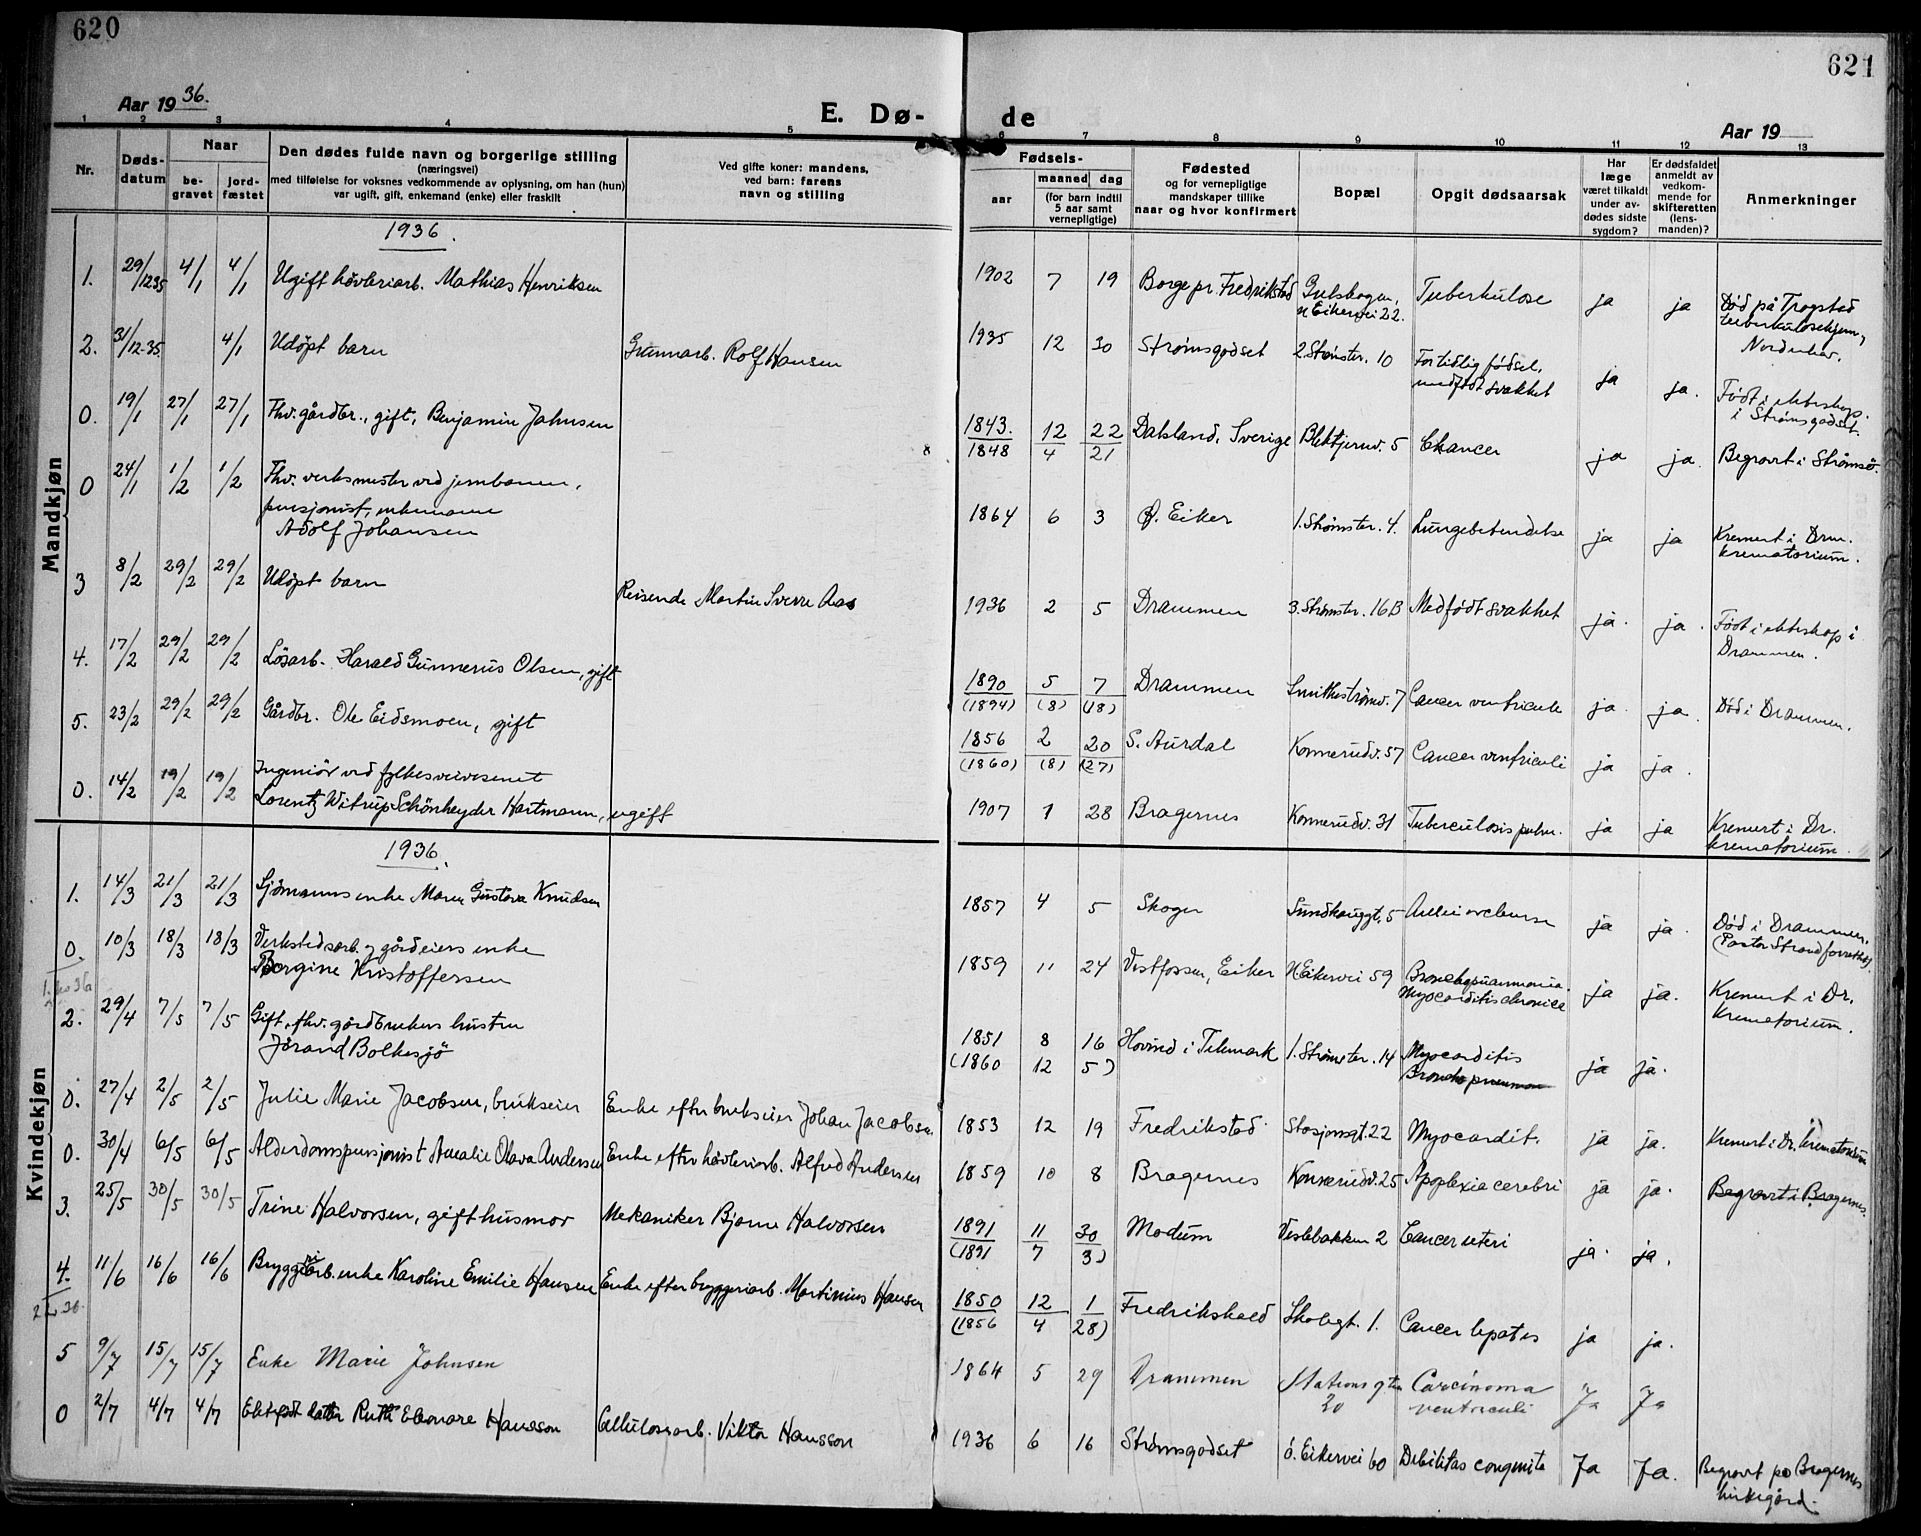 620
621
Aar 1936.
E. Dø-
de
Aar 19
1 2 3 4 5 6 7 8 9 10 11 12 13
Nr.
Døds-
datum
Naar
be-
gravet
jord-
fæstet
Den dødes fulde navn og borgerlige stilling
(næringsvei)
med tilføielse for voksnes vedkommende av oplysning, om han (hun)
var ugift, gift, enkemand (enke) eller fraskilt
Ved gifte koner: mandens,
ved barn: farens
navn og stilling
Fødsels-
aar
maaned
dag
(for barn indtil
5 aar samt
vernepligtige)
Fødested
og for vernepligtige
mandskaper tillike
naar og hvor konfirmert
Bopæl
Opgit dødsaarsak
Har
læge
været tilkaldt
under av-
dødes sidste
sygdom?
Er dødsfaldet
anmeldt av
vedkom-
mende for
skifteretten
(lens-
manden)?
Anmerkninger
Mandkjøn
1936.
1. 29/12 35 4/1 4/1 Ugift høvleriarb. Mathias Henriksen 1902 7 19 Borge pr. Fredrikstad Gulskogen, n Eikervei 22. Tuberkulose ja ja Død på Trogstad
tuberkulosehjem,
2. 31/12-35. 4/1 Udøpt barn Grunnarb. Rolf Hansen 1935 12 30 Strømsgodset 2. Strømster. 10 For tidlig fødsel, ja ja.
medfødt svakhet
Født i ekteskap.
i Strømsgodset.
0. 19/1 27/1 27/1 Fhv. gårdbr., gift, Benjamin Jahnsen 1843. 12 22 Dalsland, Sverige Blektjernv. 5 Cancer ja ja. Begravt i Strømsø.
1848 4 21
0 24/1 1/2 1/2 Fhv. verksmester ved jernbanen,
pensjonist, enkemann
Adolf Johansen 1864 6 3 Ø. Eiker 1. Strømster. 4. Lungebetendelse ja ja Kremert i Drm.
krematorium.
3 8/2 29/2 29/2 Udøpt barn Reisende Martin Sverre Aas 1936 2 5 Drammen 3. Strømster. 16B Medfødt svakhet ja. ja. Født i ekteskap i
Drammen.
4. 17/2 29/2 29/2 Løsarb. Harald Gunnerius Olsen, gift 1890 5 7 Drammen Smithestrømv. 7 Cancer ventricule ja. ja. Død i Drammen.
(1894) (8) (18)
5. 23/2 29/2 29/2 Gårdbr. Ole Eidsmoen, gift 1856 2 20 S. Aurdal Konnerudv. 57 Cancer ventriculi ja ja.
(1860) (8) (27)
0. 14/2 19/2 19/2 Ingeniør ved fylkesveivesenet
Lorentz Witrup Schönheyder Hartmann, ugift 1907 1 28 Bragernes Konnerudv. 31 Tuberculosis pulm. ja ja Kremert i Dr.
krematorium.
Kvindekjøn
1936.
1. 14/3 21/3 21/3 Sjømanns enke Maren Gustava Knudsen 1857 4 5 Skoger Sundhauggt. 5 ja ja. Død i Drammen.
(Pastor Strand forrettet)
0. 10/3 18/3 18/3 Verkstedsarb. og gårdeiers enke
Borgine Kristoffersen 1859 11 24 Vestfossen, Eiker N Eikervei 59 Bronchopneumonia.
Myocarditis chronica ja ja. Kremert i Dr.
Krematorium.
2. 29/4 7/5 7/5 Gift, fhv. gårdbrukers hustru
Jørand Bolkesjø 1851 8 16 Hovind i Telemark 1. Strømster. 14 Myocarditis ja ja.
(1860 12 5)
0. 27/4 2/5 2/5 Julie Marie Jacobsen, brukseier Enke efter brukseier Johan Jacobsen. 1853 12 19 Fredrikstad. Stasjonsgt. 22 Myocardit. ja ja. Kremert i Dr. krematorium
0. 30/4 6/5 6/5 Alderdomspensjonist Amalie Olava Andersen Enke efter høvleriarb. Alfred Andersen 1859 10 8 Bragernes Konnerudv. 25 Apoplexia cerebri ja ja. Begravt i Bragernes.
3. 25/5 30/5 30/5 Trine Halvorsen, gift husmor Mekaniker Bjarne Halvorsen 1891 11 30 Modum Vestebakken 2 Cancer uteri ja. ja.
(1891 7 3)
4. 11/6 16/6 16/6 Bryggeriarb. enke Karoline Emilie Hansen Enke efter bryggeriarb. Martinius Hansen 1850 12 1 Fredrikshald Skolegt. 1. Cancer hepatis ja ja.
(1856 4 28)
5 9/7 15/7 15/7 Enke Marie Johnsen 1864 5 29 Drammen Stationsgten Carcinoma Ja Ja
20 ventriculi
0 2/7 4/7 4/7 Ektefødt datter Ruth Eleonore Hansson Cellulosearb. Viktor Hansson 1936 6 16 Strømsgodset ö. Eikervei 60 Debilitas congenita Ja Ja. Begravt på Bragernes
kirkegård.